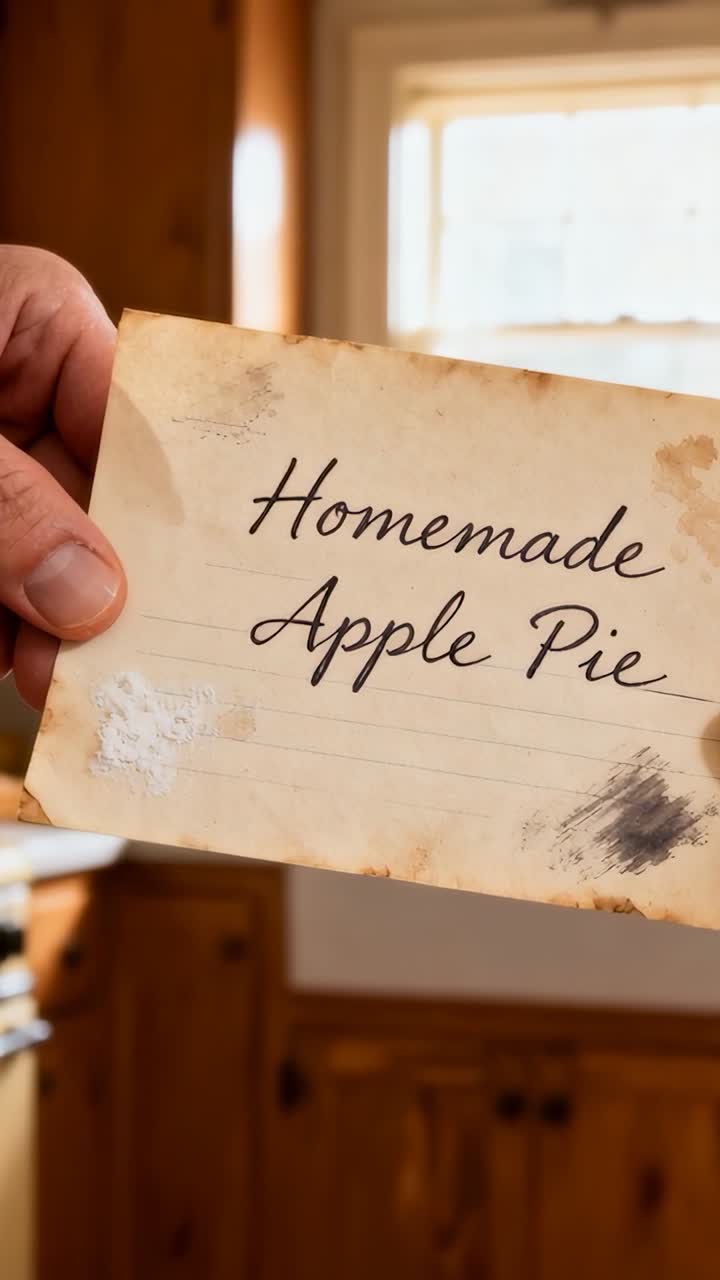 Homemade
Apple Pie